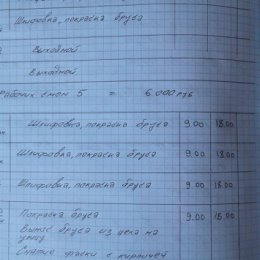 Шлифовка, покраска бруса
Выходной
Выходной
Рабочих смен 5 = 6 000 руб
Шлифовка, покраска бруса 9.00 18.00
Шлифовка, покраска бруса 9.00 18.00
Шлифовка, покраска бруса 9.00 18.00
Покраска бруса 9.00 15.00
Вынос бруса из цеха на
улицу
Снятие фаски с кирпичей